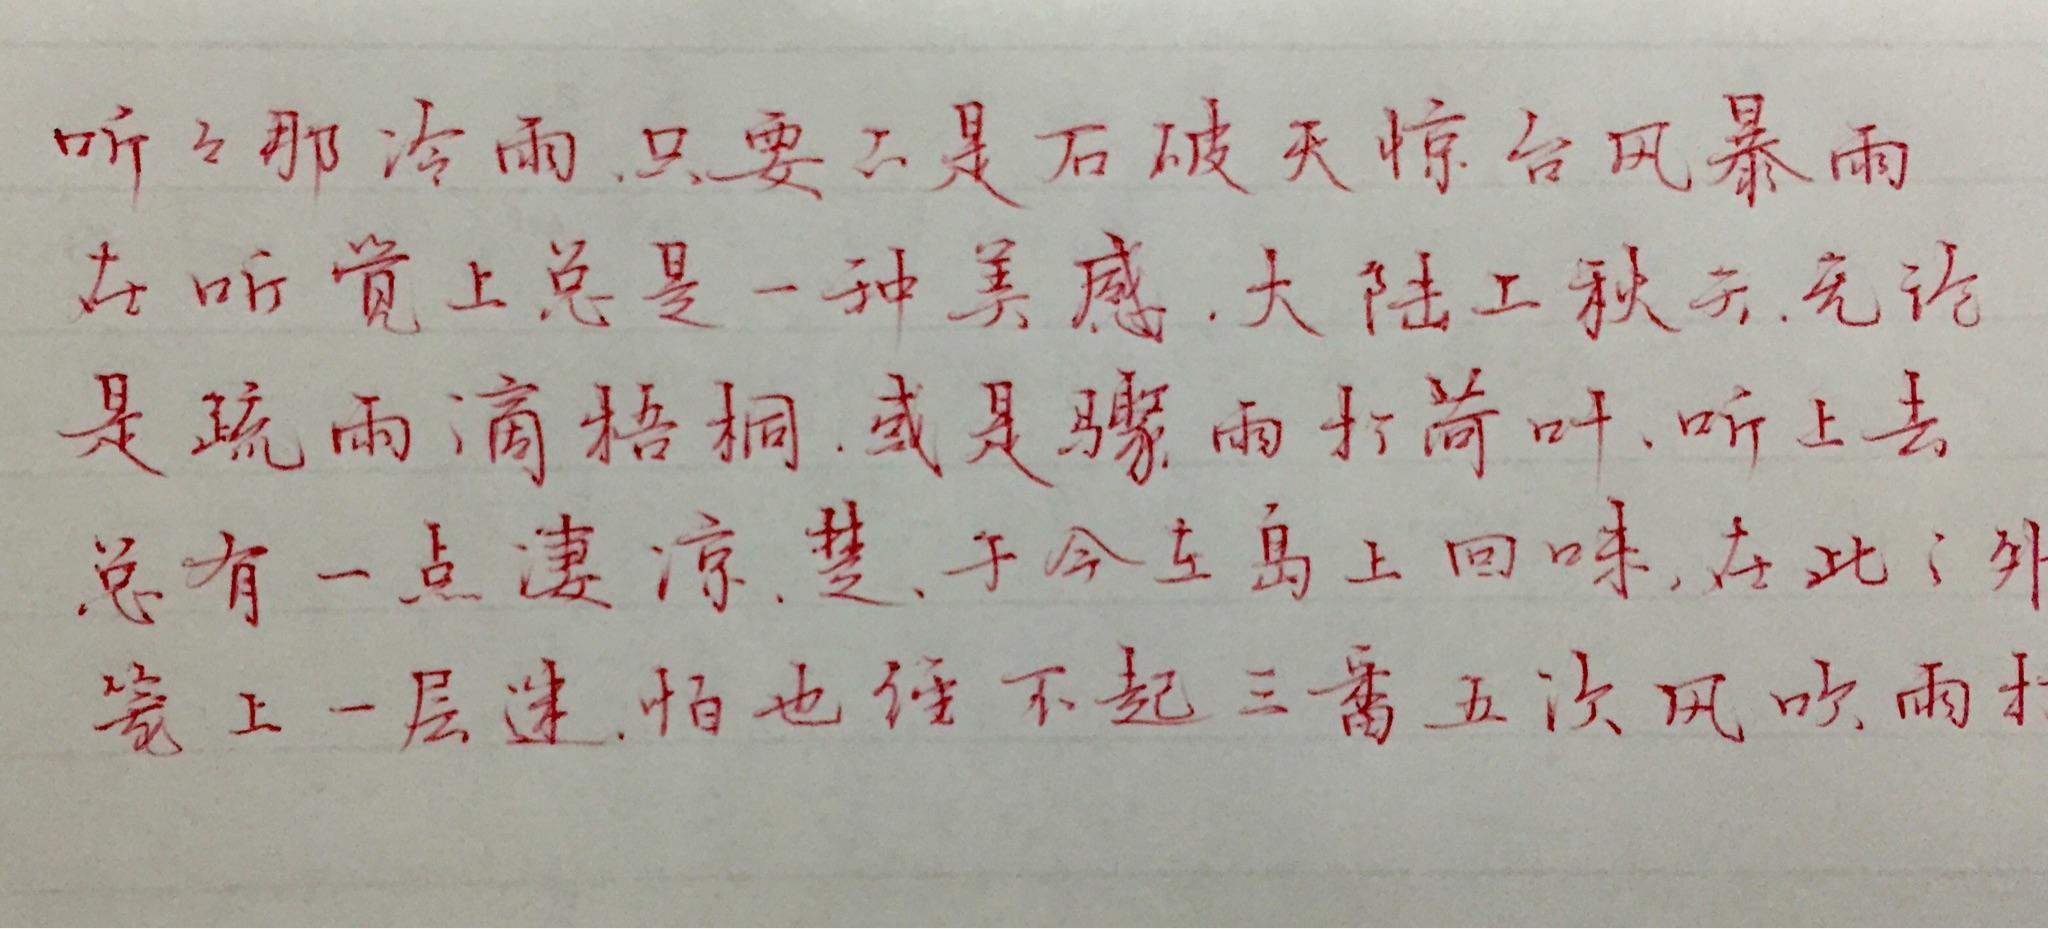 听々那冷雨.只要不是石破天惊台风暴雨
在听觉上总是一种美感.大陆上秋天.无论
是疏雨滴梧桐.或是骤雨打荷叶、听上去
总有一点凄凉.楚、于今在岛上回味,在此之外
笼上一层迷.怕也经不起三番五次风吹雨打